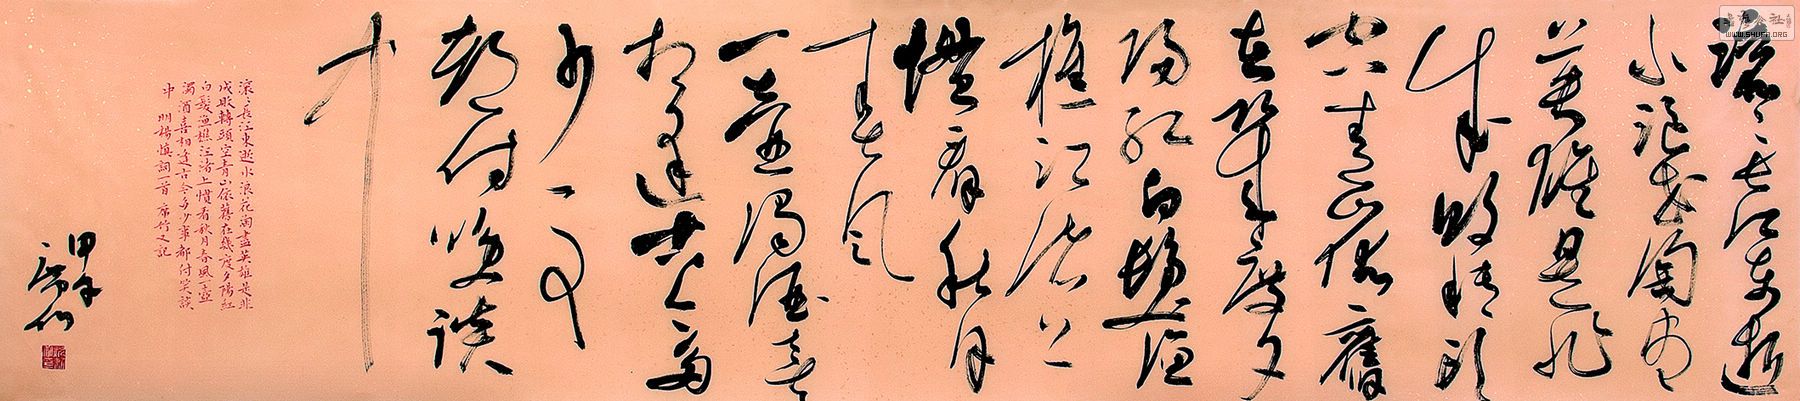 滚〻长江东逝
水浪花淘尽
英雄是非
成败转头
空青山依舊
在幾度夕
阳红白髮渔
樵江渚上
惯看秋月
春风
一壶浊酒喜
相逢古今多
少事
都付笑谈
中
滚〻長江東逝水浪花淘盡英雄是非
成敗轉頭空青山依舊在幾度夕陽紅
白髮漁樵江渚上慣看秋月春風一壺
濁酒喜相逢古今多少事都付笑談
中 明楊慎詞一首 席竹又記
甲午
席竹
WWW.SHUFA.ORG